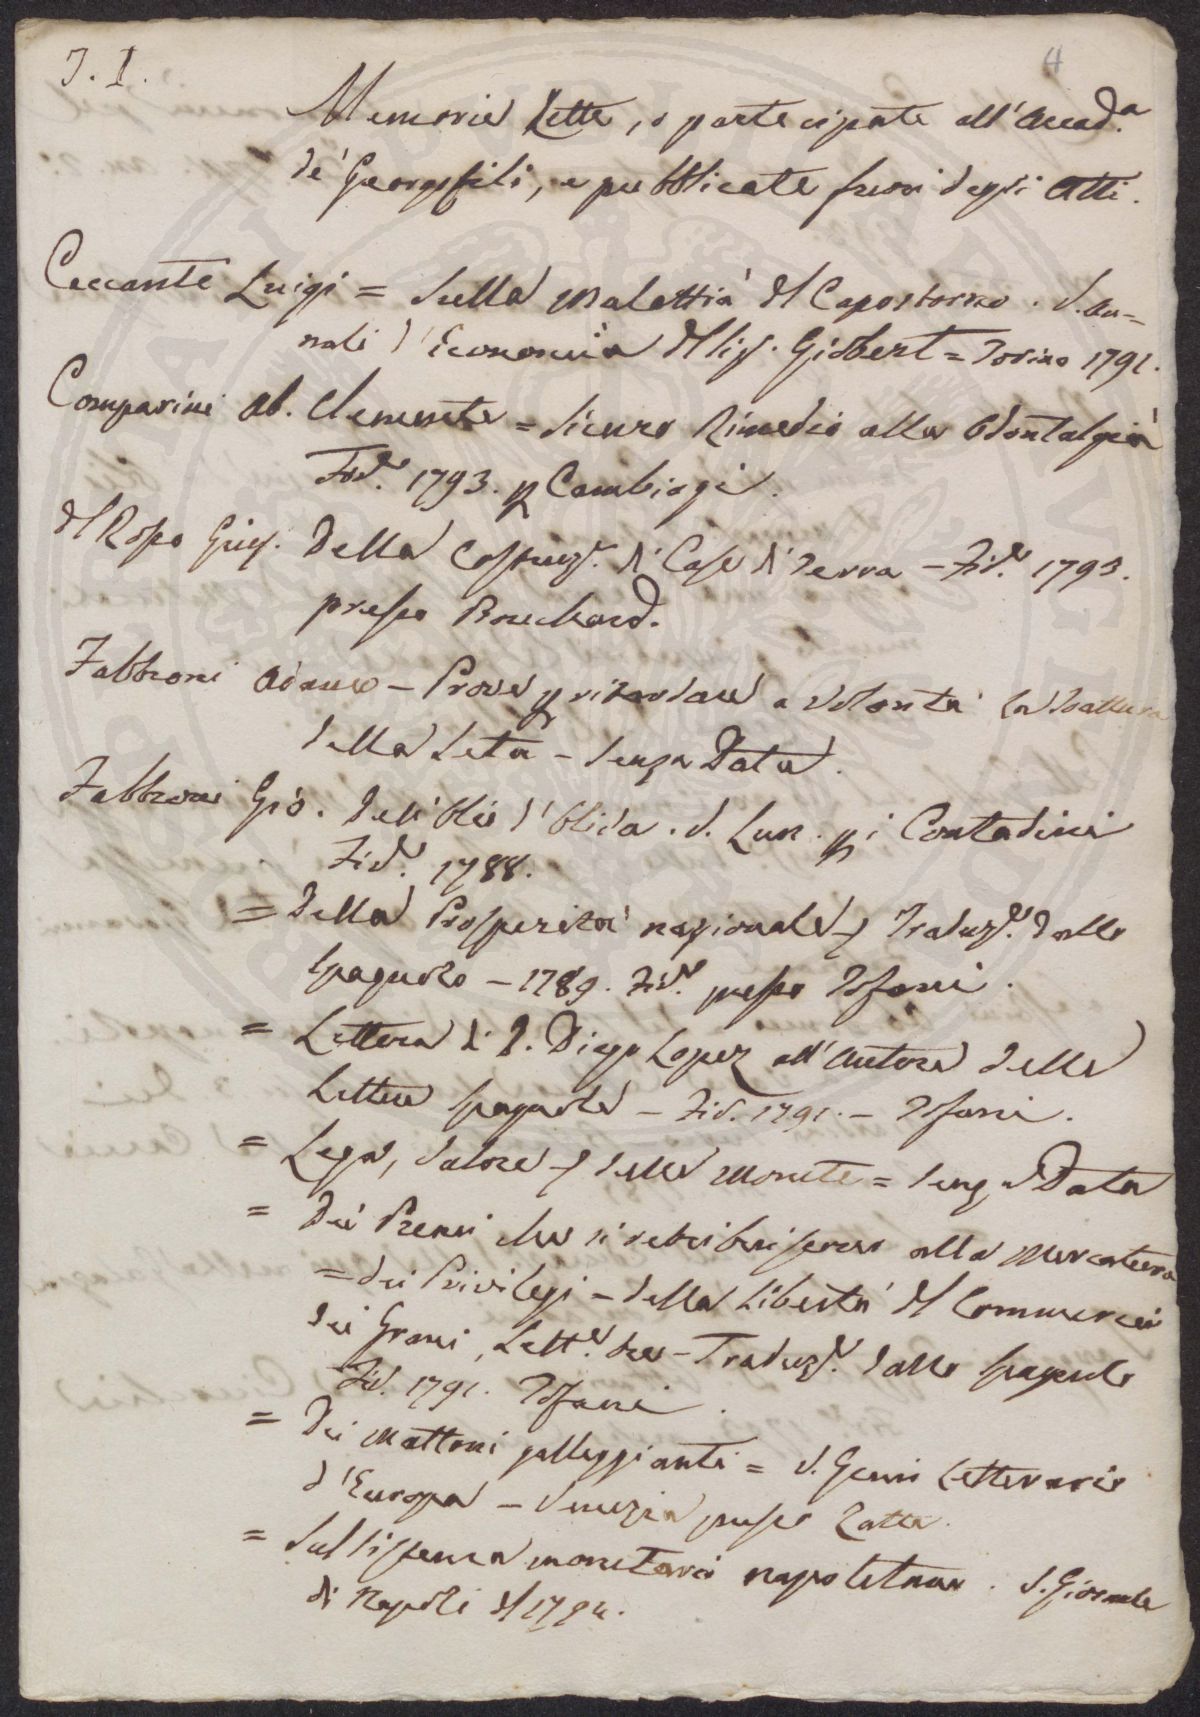 J. I.
4
Memorie Lette, o partecipate all'Accad.a
de' Georgofili, e pubblicate fuori degli Atti.
Ceccanti Luigi = Sulla Malattia del Capostorno. V. An-
nali d'Economia del Sig. Giobert = Torino 1791.
Comparini Ab. Clemente = Sicuro Rimedio alla Odontalgia
Fir.e 1793. p Cambiagi.
del Rosso Gius. Della Costruz.e di Case di Terra - Fir.e 1793.
presso Bouchard.
Fabbroni Adamo - Prove p ritardare a volontà la
della Seta - Senza Data.
Fabbroni Gio. Dell'Olio d'Oliva. V. Lun. p i Contadini
Fir.e 1788.
= Della Prosperità nazionale Traduz.e dallo
Spagnolo - 1789. Fir.e presso Tofani.
= Lettera di D. Diego Lopez all'Autore delle
Lettere Spagnole - Fir. 1791. - Tofani.
= Lega, Valore delle Monete = Senza Data
= Dei Premi che si retribuiscono alla Mercatura
= dei Privilegi - della Libertà del Commercio
dei Grani, Lett.e tre - Traduz.e dallo Spagnolo
Fir. 1791. Tofani.
= Dei Mattoni galleggianti = V. Genio Letterario
d'Europa - Venezia presso Zatta.
= Sul sistema monetario napoletano. V. Giornale
di Napoli del 1794.